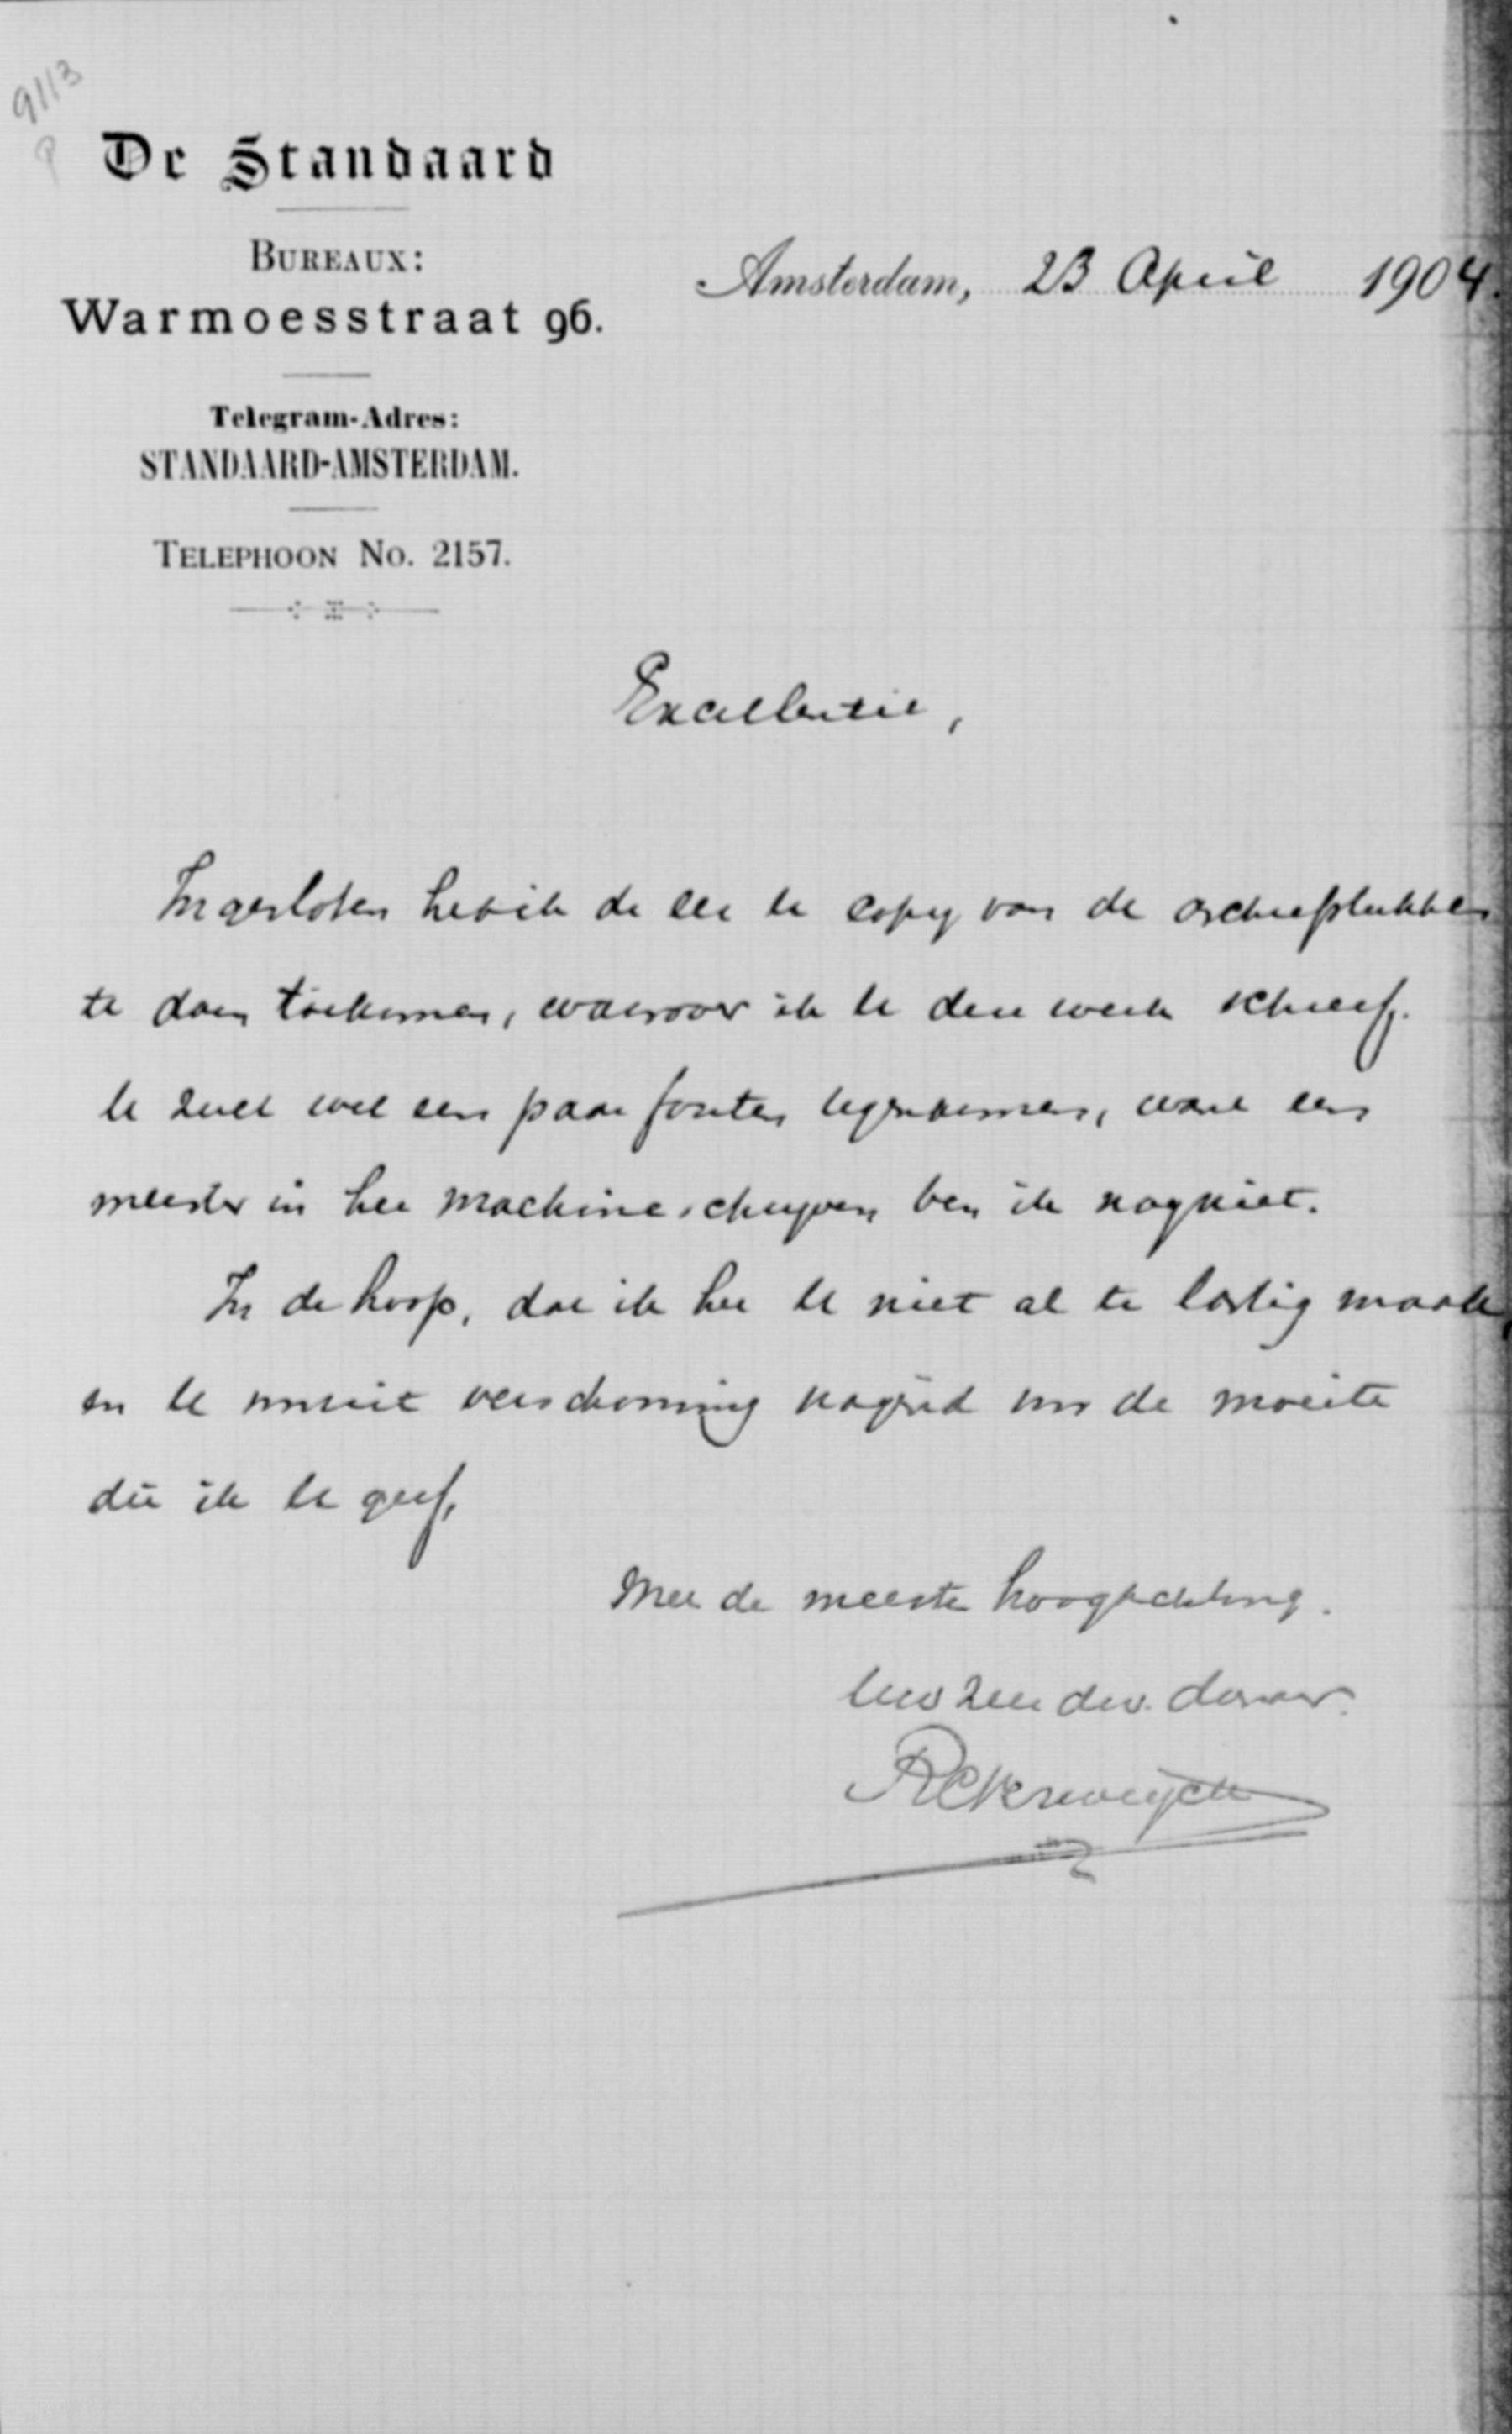 9113
De Standaard
BUREAUX:
Warmoesstraat 96.
Telegram-Adres:
STANDAARD-AMSTERDAM.
TELEPHOON No. 2157.
Amsterdam, 23 April 1904.
Excellentie,
Ingesloten heb ik de eer U copy van de archiefstukken
te doen toekomen, waarover ik U deze week schreef.
U zult wel een paar fouten tegenkomen, want een
meester in het machineschrijven ben ik nog niet.
In de hoop, dat ik het U niet al te lastig maak,
en U verschooning voor de moeite
die ik U geef,
Met de meeste hoogachting.
Uw zeer dw. dienaar.